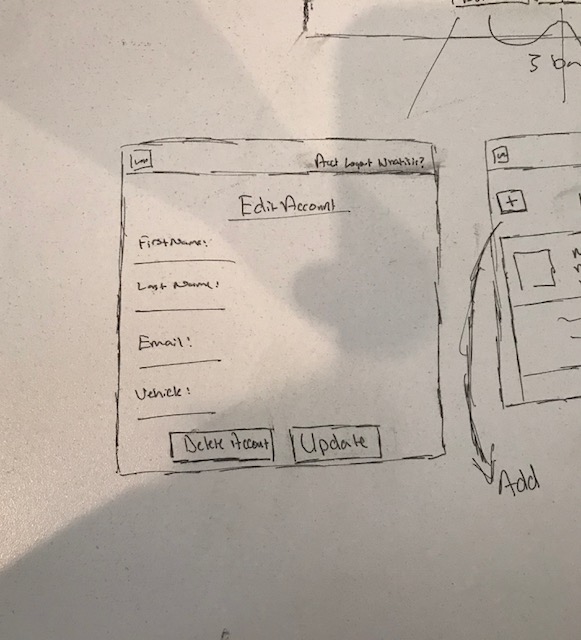 3
Acct Logout
Edit Account
First Name:
Last Name:
+
Email:
Vehicle:
Delete Account
Update
Add